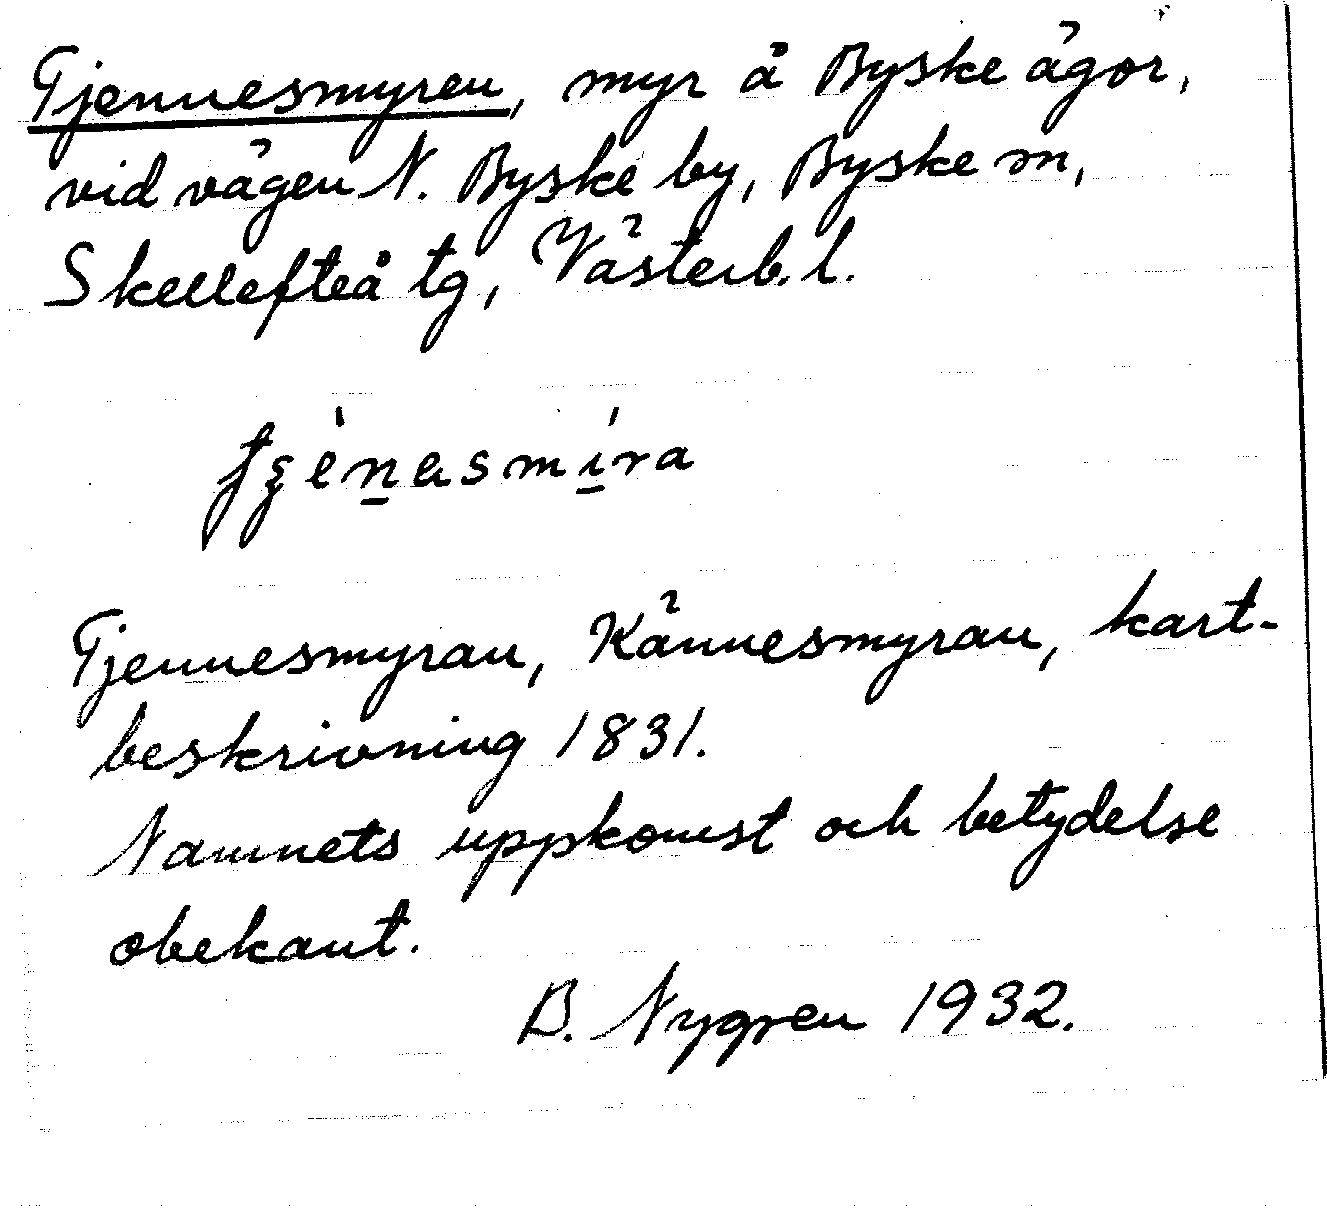 Tjennesmyren, myr å Byske ägor,
vid vägen N. Byske by, Byske sn,
Skellefteå tg, Västerb. l.
Tjennesmyran, Kännesmyran, kart-
beskrivning 1831.
Namnets uppkomst och betydelse
obekant.
B. Nygren 1932.